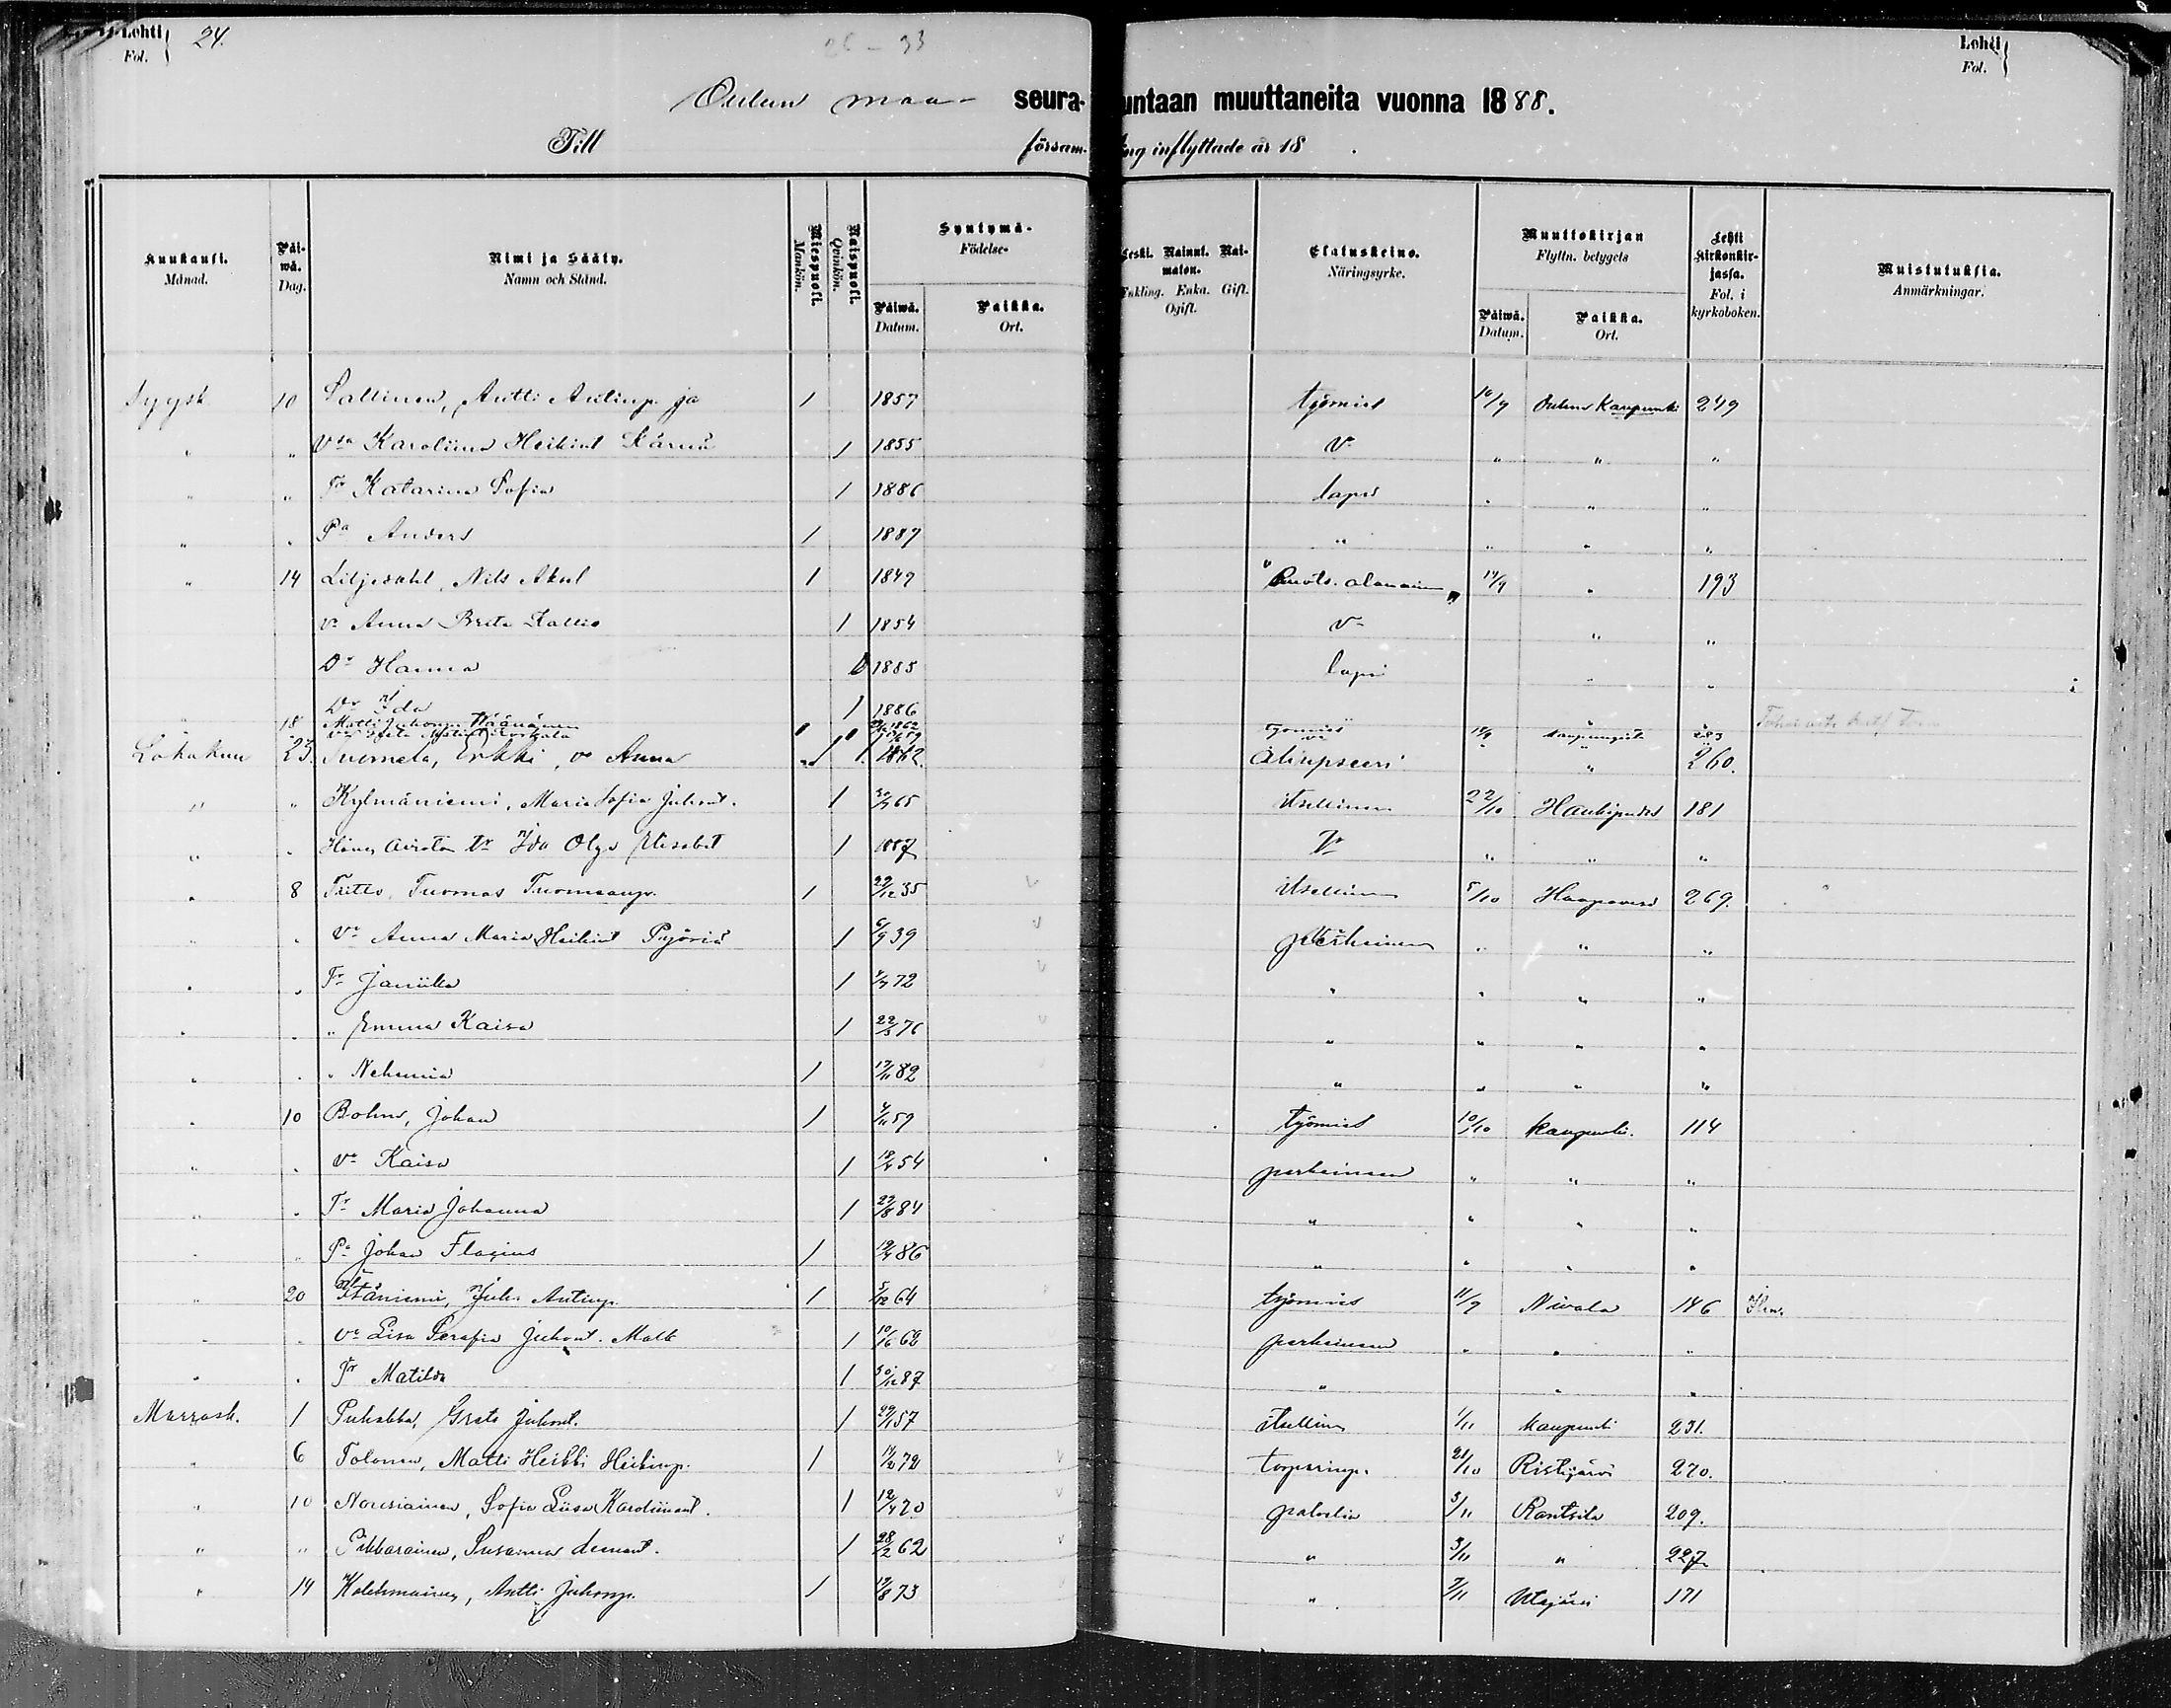 Lehti Fol. 24. 26 - 33 Lehti Fol.
Oulun maa- seura- untaan muuttaneita vuonna 1888.
Till försam- ing inflyttade år 18 .
Kuukausi. Månad. Päi-wä. Dag. Nimi ja Sääty. Namn och Stånd. Miespuoli. Mankön. Naispuoli. Qvinkön. Syntymä- Födelse- Päiwä. Datum. Paikka. Ort. Leski. Nainut. Nai-maton. Enkling. Enka. Gift. Ogift. Elatuskeino. Näringsyrke. Muuttokirjan Flyttn. betygets Päiwä. Datum. Paikka. Ort. Lehti Kirkonkir-jassa. Fol. i kyrkoboken. Muistutuksia. Anmärkningar.
Syysk 10 Sallinen, Antti Antinp. ja 1 1857 työmies 10/9 Oulun Kaupunki 249
" " Vaa Karoliina Heikint Kärnä 1 1855 Vo " " "
" " Tr Katarina Sofia 1 1886 lapsi " " "
" " Pa Anders 1 1887 " " " "
" 14 Liljedahl, Nils Aksel 1 1849 Ruots. alamainen 14/9 " 193
vo Anna Brita Kallio 1 1854 Vo " "
Dr Hanna 1 1885 lapsi " "
" Dr Ida 1 1886 " "
18 Matti Juhonp. 1 1862 työmies 18/9 kaupungista 283
Lokakuu 23. Suomela, Erkki, vo Anna 1 1 1862. Aliupseeri " 260.
" " Kylmäniemi, Maria Sofia Juhont. 1 30/7 65 itsellinen 22/10 Haukipudas 181
" " Hänen aviotön tr Ida Olga Elisabet 1 1887 Tr " " "
" 8 Tritto, Tuomas Tuomaanp. 1 29/12 35 itsellinen 5/10 Haapavesi 269.
" " Vo Anna Maria Heikint Pyöriä 1 6/9 39 perheineen " " "
" " Tr Janiika 1 4/7 72 " " " "
" " " Emma Kaisa 1 22/3 76 " " " "
" " " Nehemia 1 17/11 82 " " " "
" 10 Bohm, Johan 1 4/11 59 työmies 10/10 kaupunki. 114
" " Vo Kaisa 1 18/4 54 perheineen " " "
" " Tr Maria Johanna 1 29/8 84 " " " "
" " Pa Johan 1 19/4 86 " " " "
" 20 Juho Antinp. 1 5/12 64 työmies 11/9 Nivala 146
" " Vo Liisa Serafia Juhont. 1 10/6 62 perheineen " " "
" " Tr Matilda 1 30/12 87 " " "
Marrask. 1 Puhakka, Greta Juhont. 1 29/1 57 itsellinen 1/11 Kaupunki 231.
" 6 Tolonen, Matti Heikki Heikinp. 1 72 torpparinp. 21/10 Ristijärvi 270.
" 10 Nousiainen, Sofia Liisa Karoliinant. 1 12/4 70 palvelia 3/11 Rantsila 209.
" " Pikkarainen, Susanna 1 28/2 62 " 3/11 " 227.
" 14 Kolehmainen, Antti Juhonp. 1 17/8 73 " 7/11 Utajärvi 171